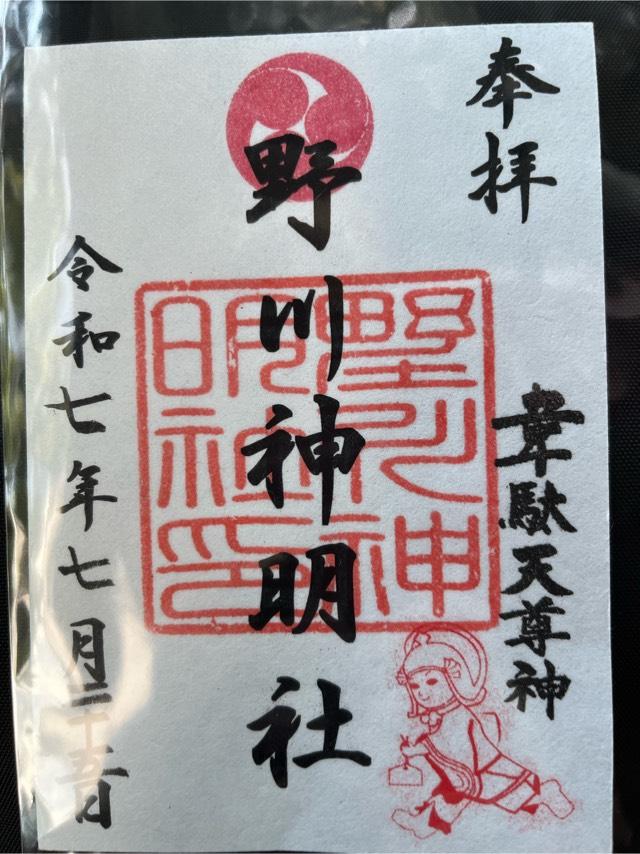 奉拝
韋駄天尊神
野川神明社
野川神
明社印
令和七年七月二十五日